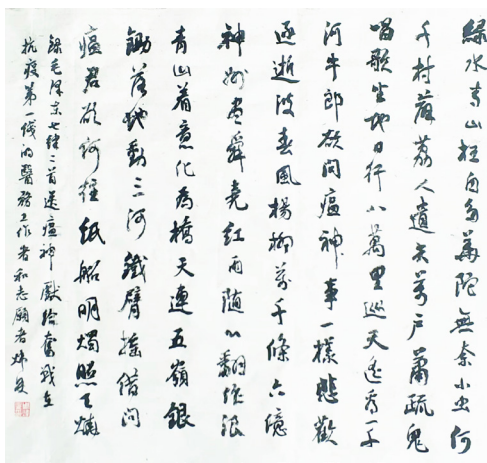 綠水青山枉自多華陀無奈小虫何
千村薜荔人遺矢萬戶蕭疏鬼
唱歌坐地日行八萬里巡天遙看一千
河牛郎欲問瘟神事一樣悲歡
逐逝波春風楊柳萬千條六億
神州盡舜堯紅雨隨心翻作浪
青山着意化爲橋天連五嶺銀
鋤落地動三河鐵臂搖借問
瘟君欲何往紙船明燭照天燒
錄毛澤東七律二首送瘟神獻給奮戰在
抗疫第一綫的醫務工作者和志願者